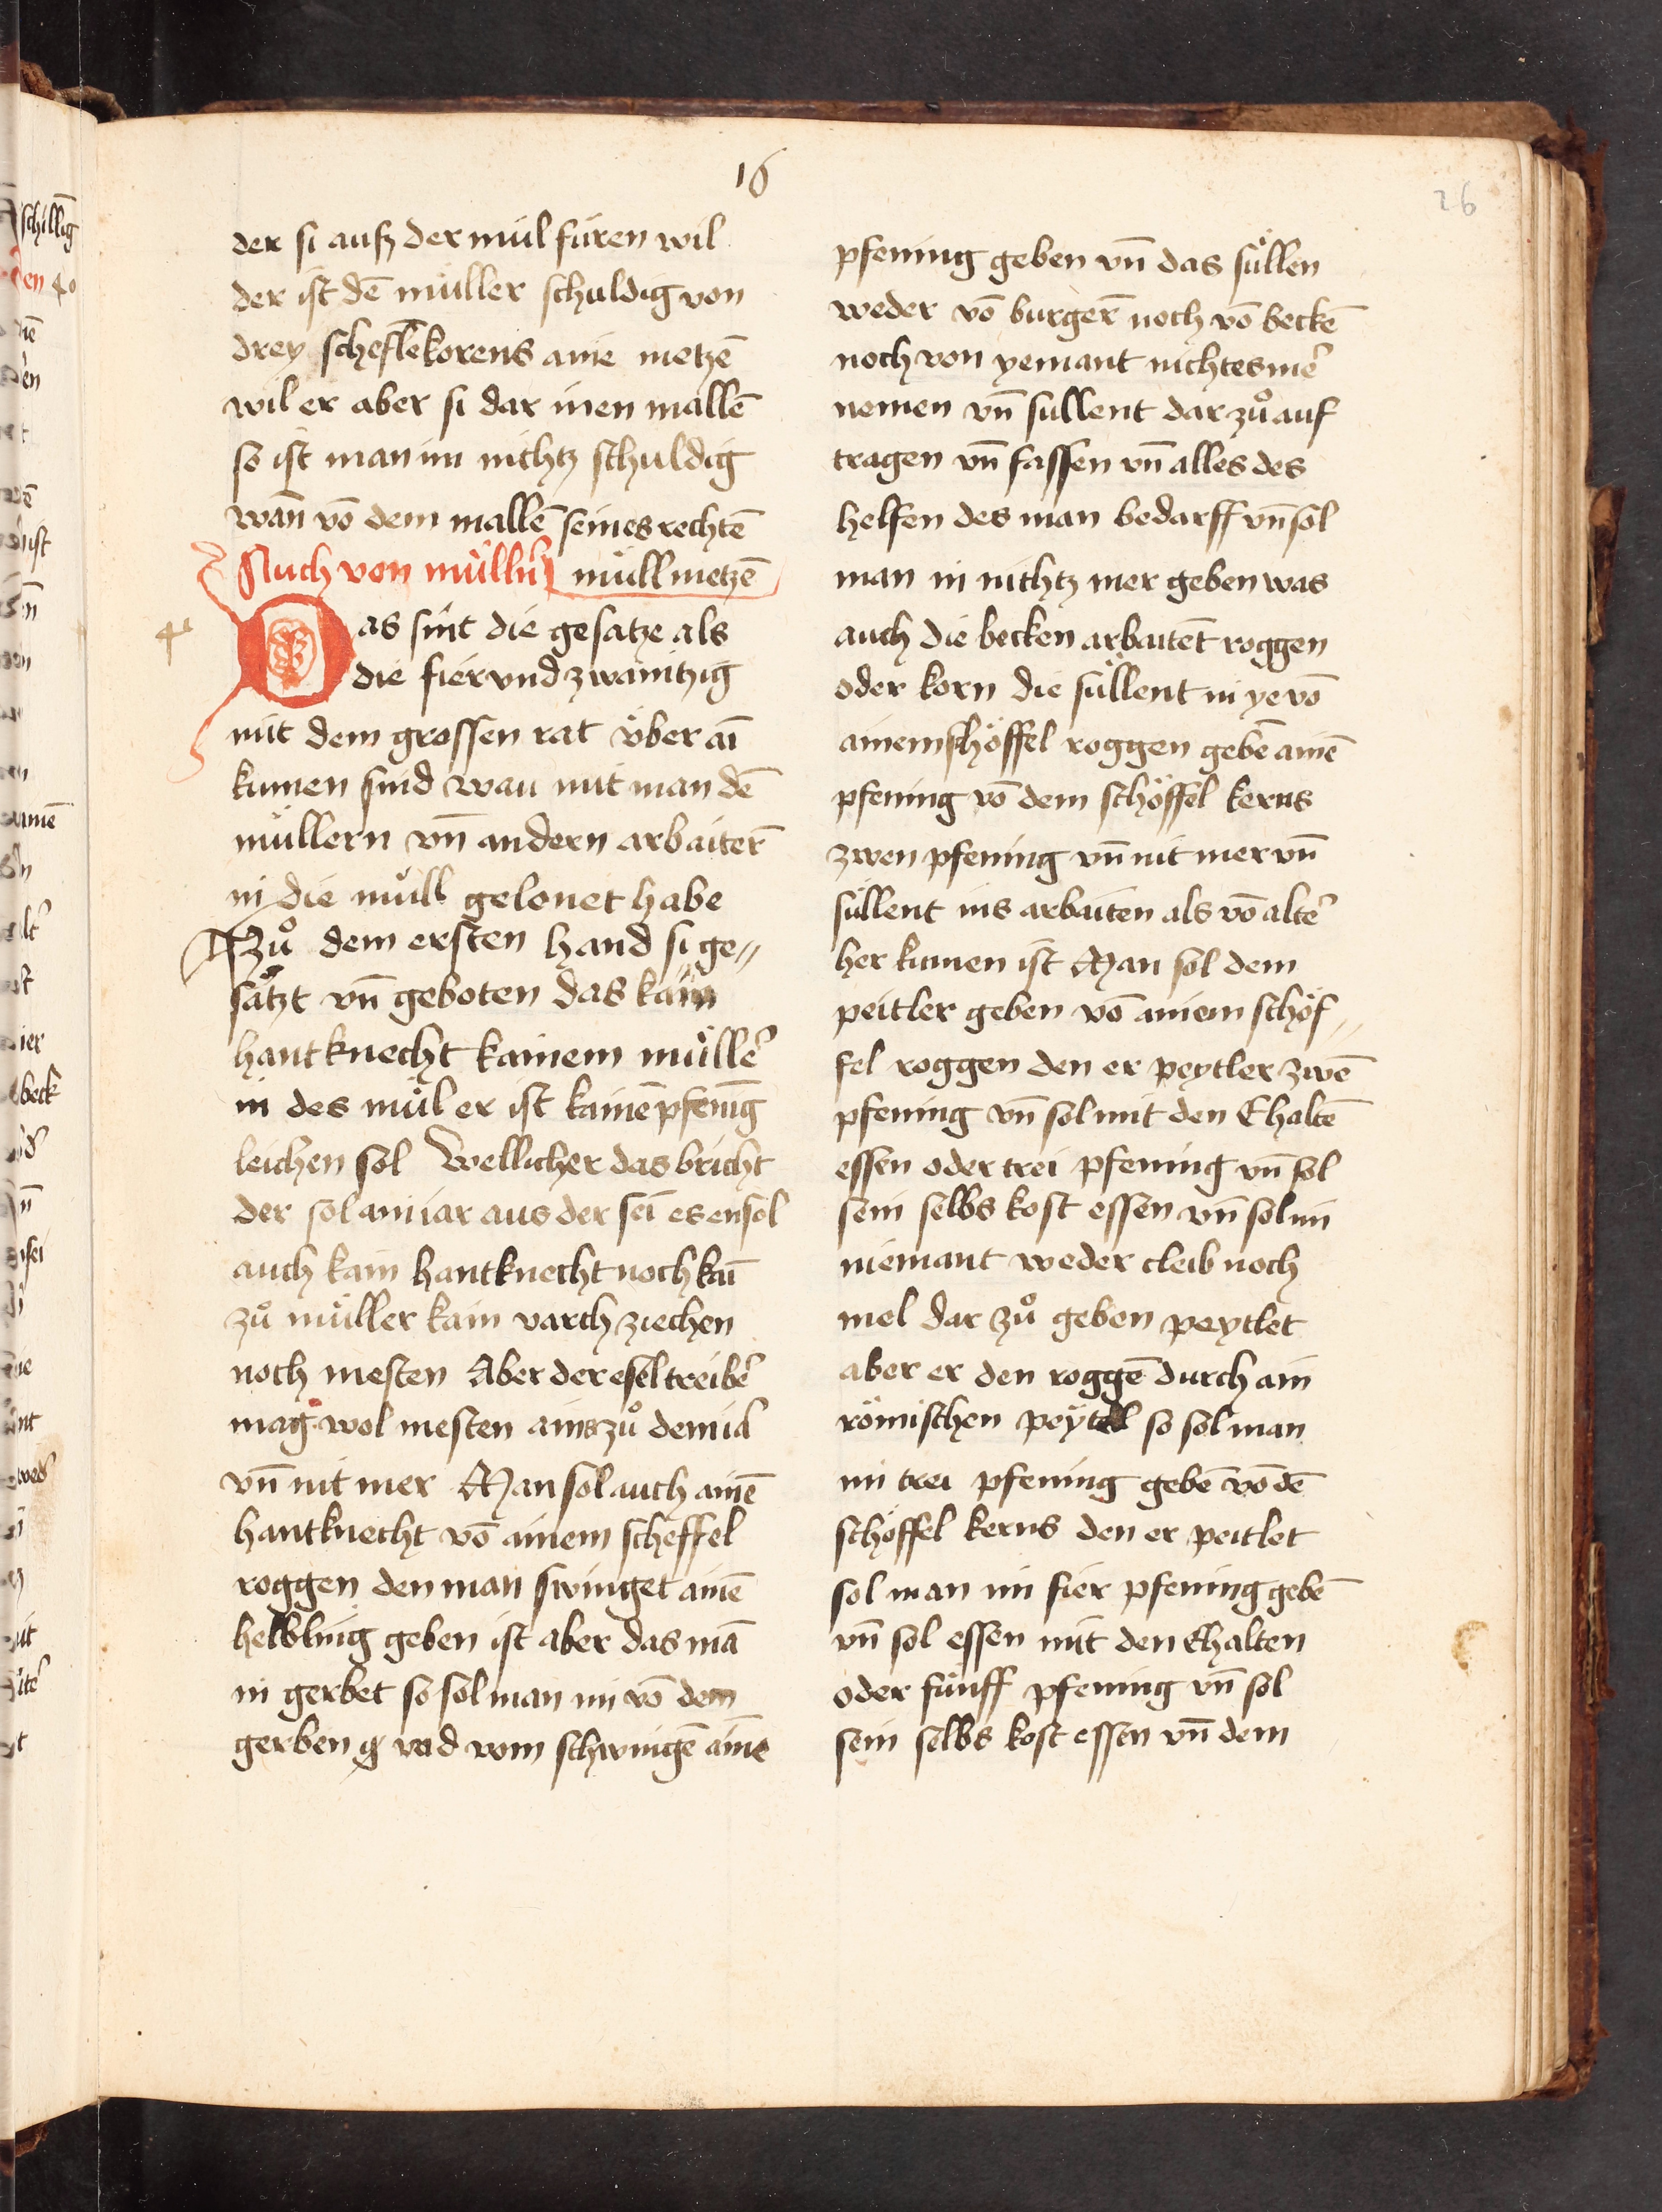 16
26
der si aufz der mül füren wil
der ist dē müller schuldig von
drey scheflē korens aine metzē
wil er aber si dar inen mallē
so ist man im nichtz schuldig
wan̄ vō dem mallē seines rechtē
Auch von müllern müllmetzē
Das sint die gesatze als
die fier vnd zwainitzig
mit dem grossen rat v̈ber ai
kumen sind wau mit man dē
müllern vn̄ andern arbaiter̄
in die müll gelonet habe
Zů dem ersten hand si ge-
sätzt vn̄ geboten das kain
hantknecht kainem müller
in des mül er ist kainē pfenīg
leichen sol Wellicher das bricht
der sol ain iar aus der sei es en sol
auch kain hantknecht noch kaī
zů müller kain varch ziechen
noch mesten Aber der esel treiber
mag wol mesten ains zů dem ia
vn̄ nit mer Man sol auch ainē
hantknecht vō ainem scheffel
roggen den man swinget ainē
helbling geben ist aber das mā
in gerbet so sol man im vō dem
gerben vnd vom schwingē ainē
pfening geben vn̄ das süllen
weder vō burger̄ noch vō beckē
noch von yemant nichtes mer
nemen vn̄ sullent dar zů auf
tragen vn̄ fassen vn̄ alles des
helfen des man bedarff vn̄ sol
man in nichtz mer geben was
auch die becken arbaitent roggen
oder korn die süllent in ye vō
ainem schöffel roggen gebē ainē
pfening vō dem schöffel kerns
zwen pfening vn̄ nit mer vn̄
süllent ins arbaiten als vō alter
her kumen ist Man sol dem
peitler geben vō ainem schöf-
fel roggen den er peytler zwē
pfening vn̄ sol mit den Ehaltē
essen oder trei pfening vn̄ sol
sein selbs kost essen vn̄ sol im
niemant weder cleib noch
mel dar zů geben peytlet
aber er den roggē durch ain
römischen peytel so sol man
im trei pfening gebē vō dē
schöffel kerns den er peitlet
sol man im fier pfening gebē
vn̄ sol essen mit den Ehalten
oder fünff pfening vn̄ sol
sein selbs kost essen vn̄ dem